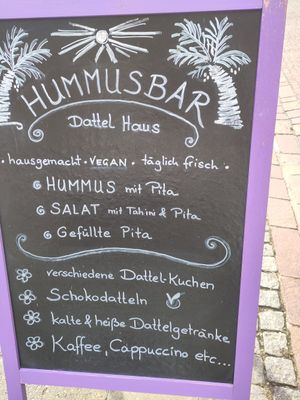 HUMMUSBAR
Dattel Haus
· hausgemacht · VEGAN · täglich frisch ·
HUMMUS mit Pita
SALAT mit Tahini & Pita
Gefüllte Pita
verschiedene Dattel-Kuchen
Schokodatteln
kalte & heiße Dattelgetränke
Kaffee, Cappuccino etc...